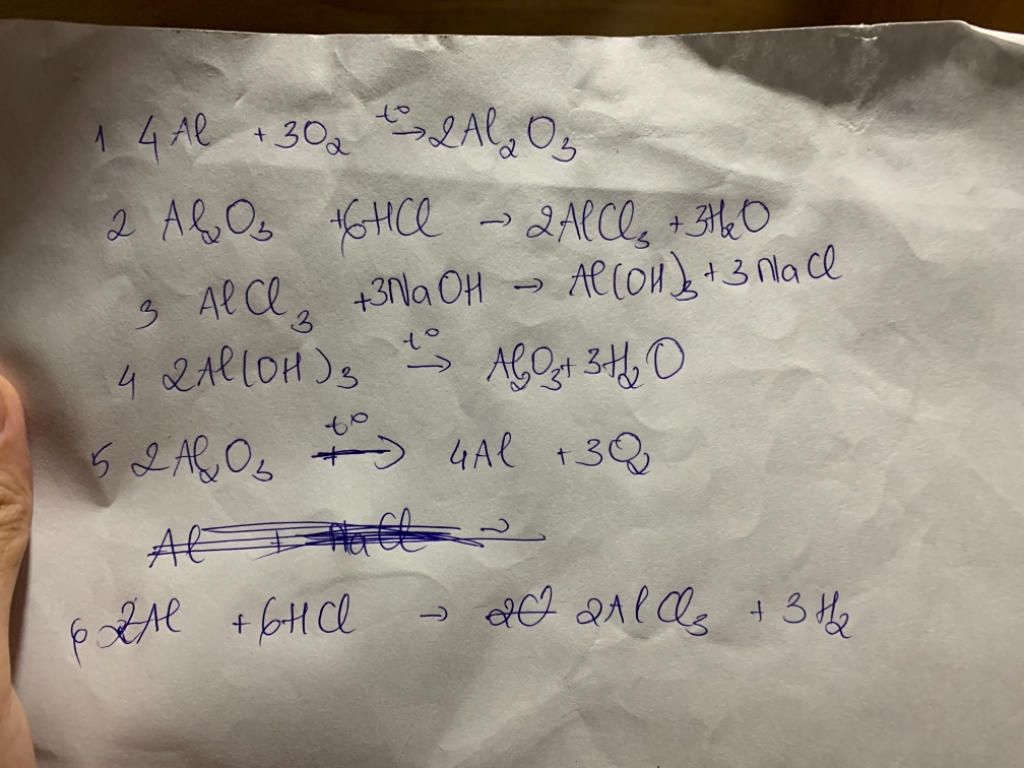 1 4Al + 3O₂ t°→ 2Al₂O₃
2 Al₂O₃ + 6HCl → 2AlCl₃ + 3H₂O
3 AlCl₃ + 3NaOH → Al(OH)₃ + 3NaCl
4 2Al(OH)₃ t°→ Al₂O₃ + 3H₂O
5 2Al₂O₃ t°→ 4Al + 3O₂
Al + NaCl →
6 2Al + 6HCl → 2Cl 2AlCl₃ + 3H₂